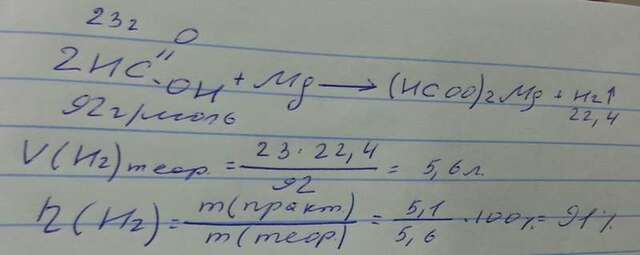 23г
O
2HC
"
-OH + Mg → (HCOO)2Mg + H2↑
92г/моль
22,4
V(H2)теор. = 23·22,4 / 92 = 5,6л.
η(H2) = m(практ) / m(теор.) = 5,1 / 5,6 · 100% = 91%